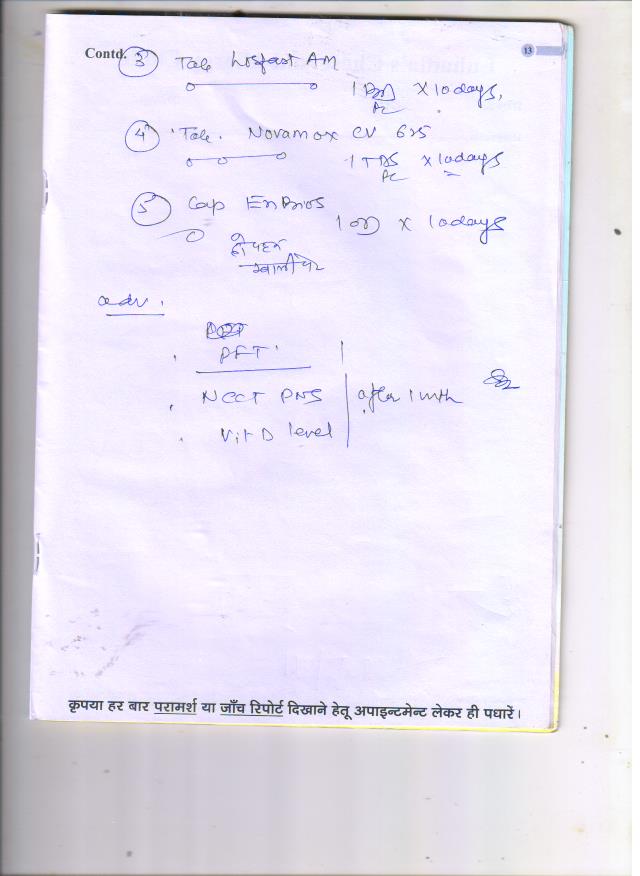 Contd.
13
③ Tab Losfast AM
1 BD x 10 days,
Pc
④ Tab. Novamox CV 625
1 TDS x 10 days
Pc
⑤ Cap EnBios 1 OD x 10 days
दोपहर
खाली पेट
adv.
PFT
NCCT PNS
after 1 mth
Vit D level
कृपया हर बार परामर्श या जाँच रिपोर्ट दिखाने हेतू अपाइन्टमेन्ट लेकर ही पधारें।